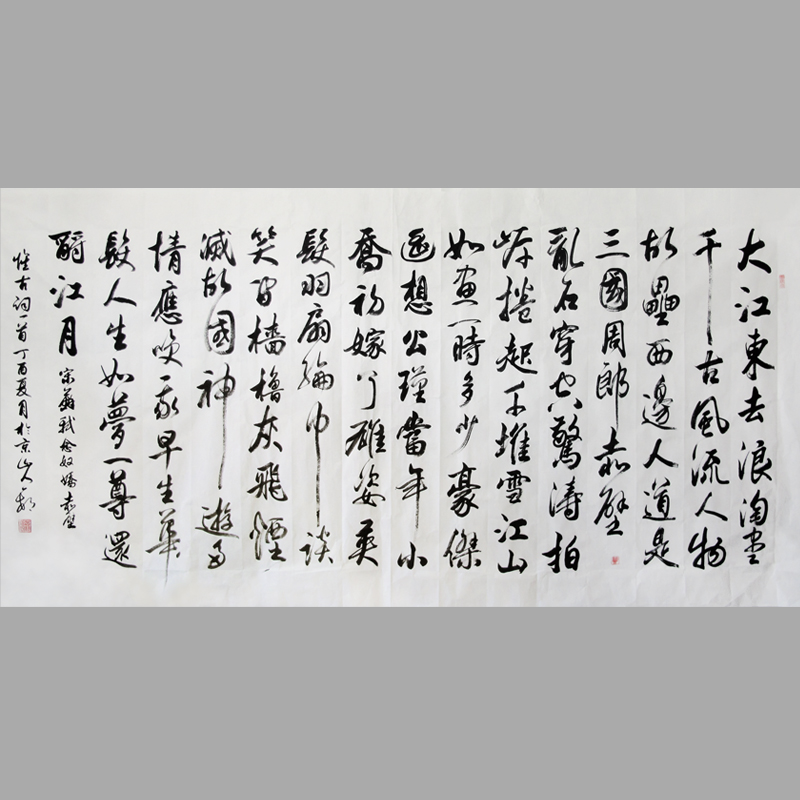 大江東去浪淘盡
千古風流人物
故壘西邊人道是
三國周郎赤壁
亂石穿空驚濤拍
岸捲起千堆雪江山
如畫一時多少豪傑
遥想公瑾當年小
喬初嫁了雄姿英
髮羽扇綸巾談
笑間檣櫓灰飛煙
滅故國神遊多
情應咲我早生華
髮人生如夢一尊還
酹江月 宋蘇軾念奴嬌赤壁
懷古詞一首丁酉夏月於京